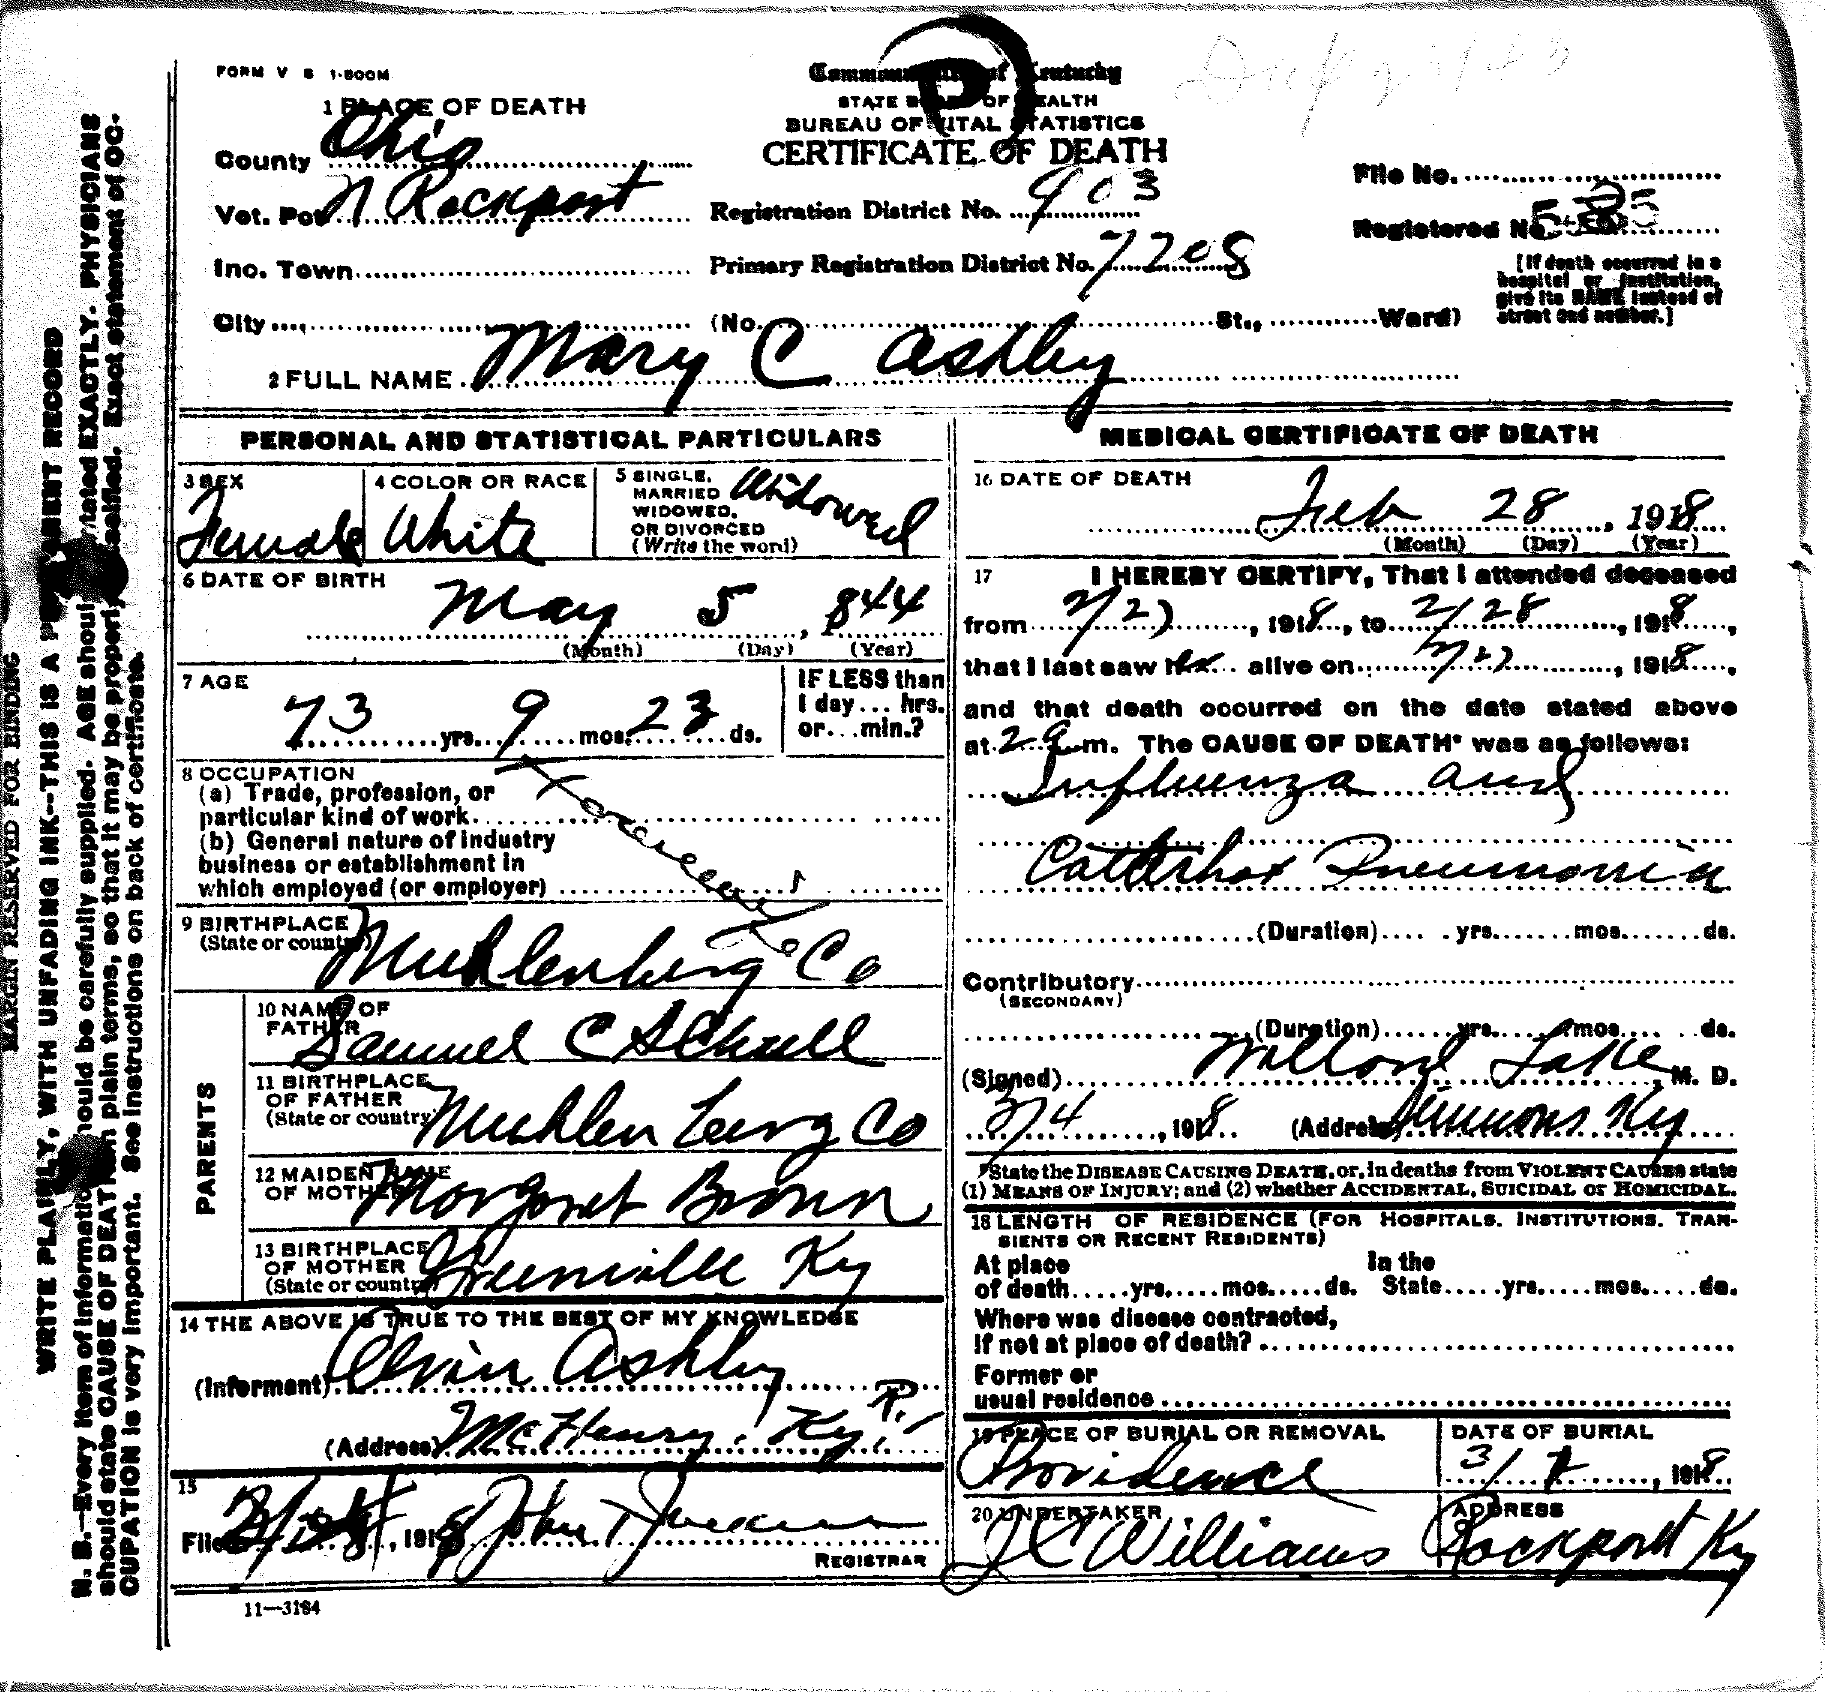 FORM V S 1-500M
Commonwealth of Kentucky
STATE BOARD OF HEALTH
BUREAU OF VITAL STATISTICS
CERTIFICATE OF DEATH
1 PLACE OF DEATH
County Ohio
Vot. Pct N Rockport
Registration District No. 903
File No.
Registered No.
Inc. Town
Primary Registration District No. 7208
[If death occurred in a hospital or institution, give its NAME instead of street and number.]
City (No. St., Ward)
2 FULL NAME Mary C Ashley
PERSONAL AND STATISTICAL PARTICULARS
3 SEX Female
4 COLOR OR RACE White
5 SINGLE, MARRIED WIDOWED, OR DIVORCED (Write the word) Widowed
6 DATE OF BIRTH May 5, 1844
(Month) (Day) (Year)
7 AGE 73 yrs. 9 mos. 23 ds.
IF LESS than 1 day ... hrs. or ... min.?
8 OCCUPATION
(a) Trade, profession, or
particular kind of work
(b) General nature of industry
business or establishment in
which employed (or employer)
9 BIRTHPLACE
(State or country) Muhlenberg Co
PARENTS
10 NAME OF FATHER Samuel C
11 BIRTHPLACE OF FATHER (State or country) Muhlenberg Co
12 MAIDEN NAME OF MOTHER Margaret Brown
13 BIRTHPLACE OF MOTHER (State or country) Greenville Ky
14 THE ABOVE IS TRUE TO THE BEST OF MY KNOWLEDGE
(Informant) Alvin Ashley
(Address) McHenry, Ky. R.1
15
Filed , 1918 John T
REGISTRAR
11—3184
MEDICAL CERTIFICATE OF DEATH
16 DATE OF DEATH
Feb 28, 1918
(Month) (Day) (Year)
17 I HEREBY CERTIFY, That I attended deceased
from 2/27, 1918, to 2/28, 1918,
that I last saw her alive on 2/27, 1918,
and that death occurred on the date stated above
at 2 a m. The CAUSE OF DEATH* was as follows:
Influenza and
Pneumonia
(Duration) yrs. mos. ds.
Contributory
(SECONDARY)
(Duration) yrs. mos. ds.
(Signed) Willard Lake, M. D.
3/4, 1918 (Address) Simmons Ky
*State the DISEASE CAUSING DEATH, or, in deaths from VIOLENT CAUSES state
(1) MEANS OF INJURY; and (2) whether ACCIDENTAL, SUICIDAL or HOMICIDAL.
18 LENGTH OF RESIDENCE (FOR HOSPITALS, INSTITUTIONS, TRAN-
SIENTS OR RECENT RESIDENTS)
At place In the
of death yrs. mos. ds. State yrs. mos. ds.
Where was disease contracted,
If not at place of death?
Former or
usual residence
19 PLACE OF BURIAL OR REMOVAL Providence
DATE OF BURIAL 3/1, 1918
20 UNDERTAKER J C Williams
ADDRESS Rockport Ky
MARGIN RESERVED FOR BINDING
WRITE PLAINLY, WITH UNFADING INK--THIS IS A PERMANENT RECORD
N. B.—Every item of information should be carefully supplied. AGE should be stated EXACTLY. PHYSICIANS
should state CAUSE OF DEATH in plain terms, so that it may be properly classified. Exact statement of OC-
CUPATION is very important. See instructions on back of certificate.